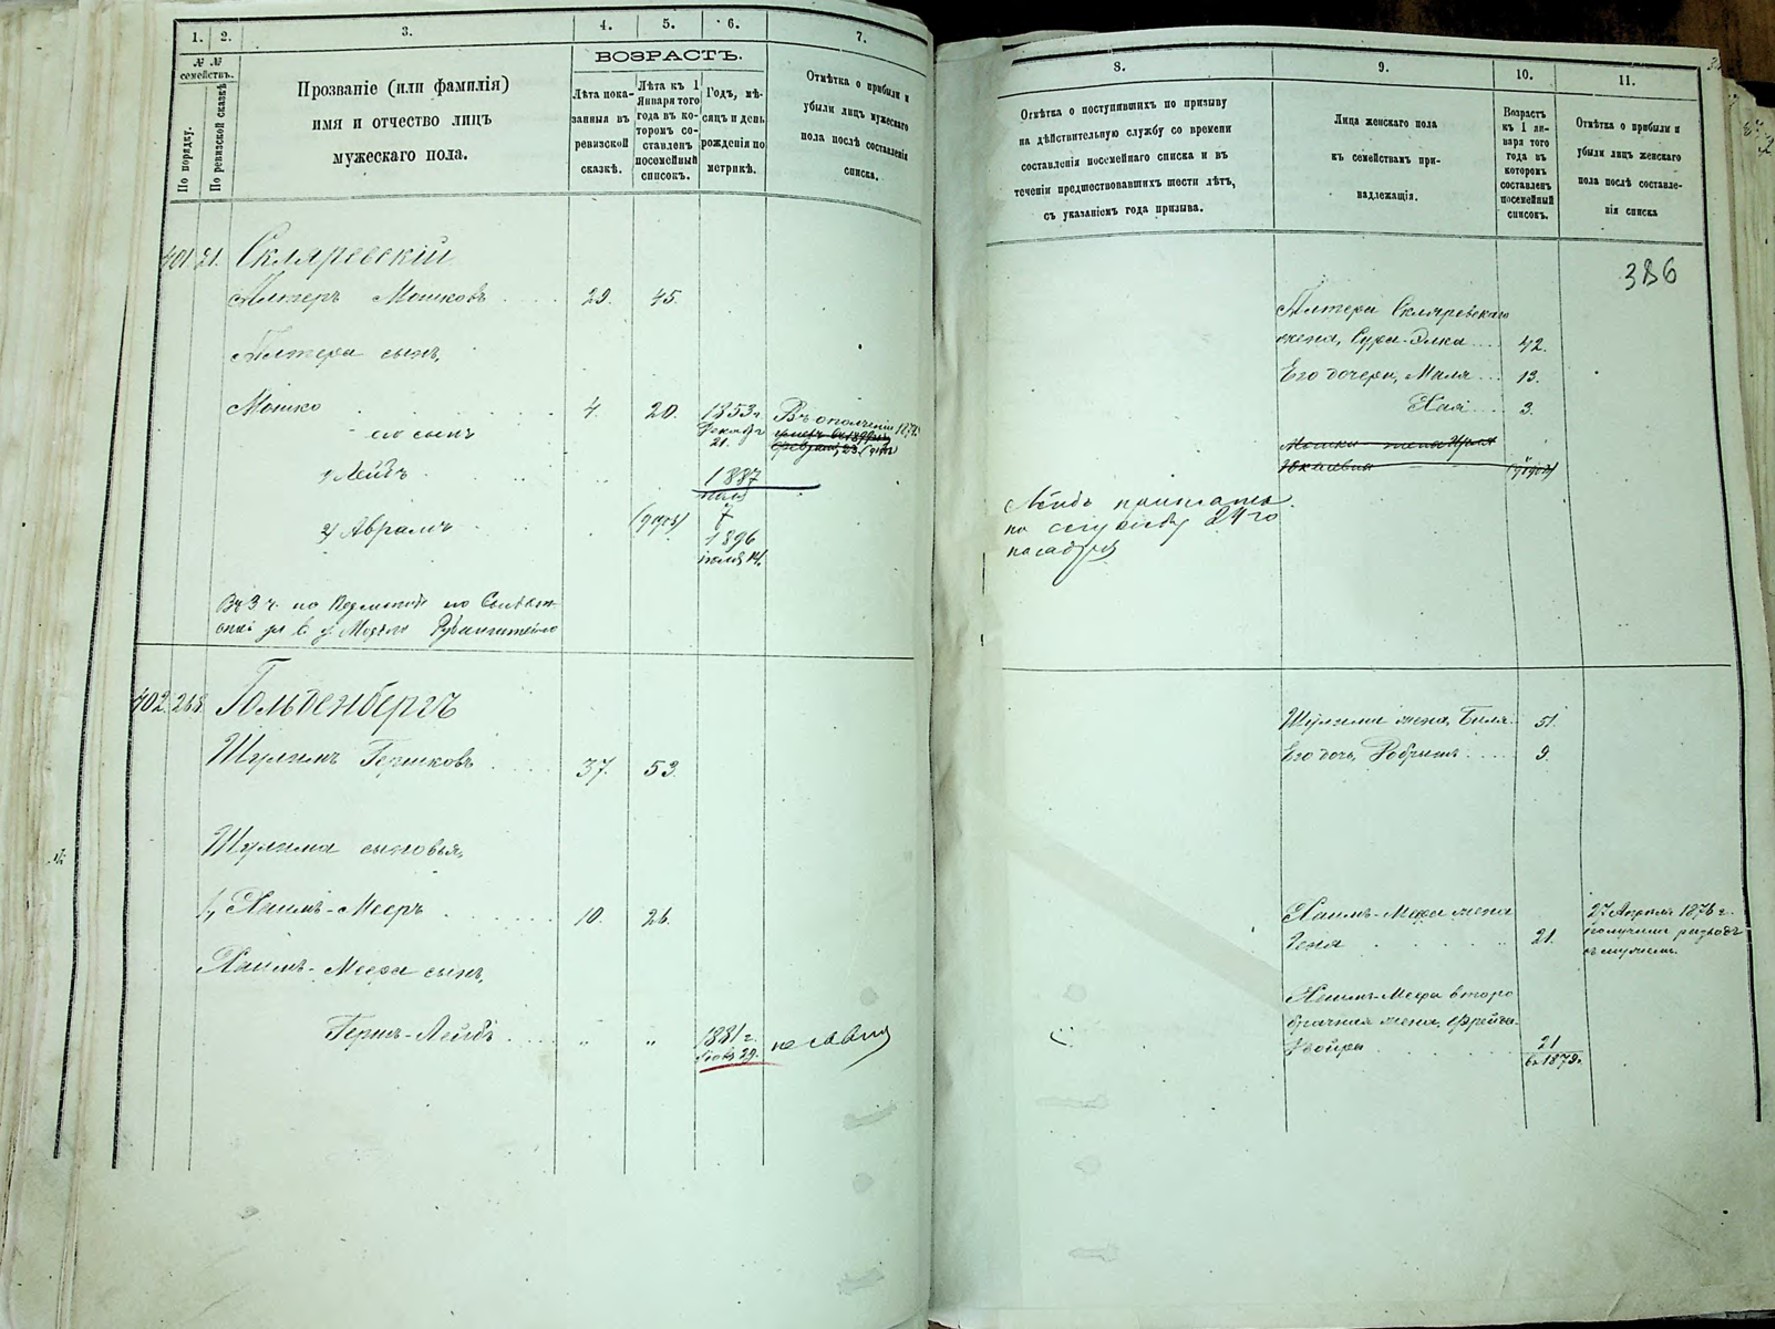 1. 2. 3. 4. 5. 6. 7.
№ № семействъ.
По порядку.
По ревизской сказкѣ
Прозваніе (или фамилія)
имя и отчество лицъ
мужескаго пола.
ВОЗРАСТЪ.
Лѣта пока-
занныя въ
ревизской
сказкѣ.
Лѣта къ 1
Января того
года въ ко-
торомъ со-
ставленъ
посемейный
списокъ.
Годъ, мѣ-
сяцъ и день
рожденія по
метрикѣ.
Отмѣтка о прибыли и
убыли лицъ мужескаго
пола послѣ составленія
списка.
401 21. Скляревскій
Алтеръ Мошковъ 29. 45.
Алтера сынъ,
Мошко 4. 20. 1853 г. Декабря 21. Въ ополченіи 187
его сынъ
1) Лейбъ 1887
2) Авраамъ 1896
402. 268. Гольденбергъ
Шулимъ Гершковъ 37. 53.
Шулима сыновья,
1, Хаимъ-Мееръ 10. 26.
Хаимъ-Меера сынъ,
Гершъ-Лейбъ „ „ 1881 г. 29.
8. 9. 10. 11.
Отмѣтка о поступившихъ по призыву
на дѣйствительную службу со времени
составленія посемейнаго списка и въ
теченіи предшествовавшихъ шести лѣтъ,
съ указаніемъ года призыва.
Лица женскаго пола
къ семействамъ при-
надлежащія.
Возрастъ
къ 1 ян-
варя того
года въ
которомъ
составленъ
посемейный
списокъ.
Отмѣтка о прибыли и
убыли лицъ женскаго
пола послѣ составле-
нія списка
386
Алтера Скляревскаго
жена, Сура-Элка 42.
Его дочери, Маля 13.
Хая 3.
Лейбъ принятъ
на службу 24 го
ноября
Шулима жена, Биля 51.
Его дочь, 9.
Хаимъ-Меера жена
Геня 21.
27 Апрѣля 1876 г.
получила разводъ
съ мужемъ.
Хаимъ-Меера второ
брачная жена, Фрейда-
Двойра 21
въ 1879 г.